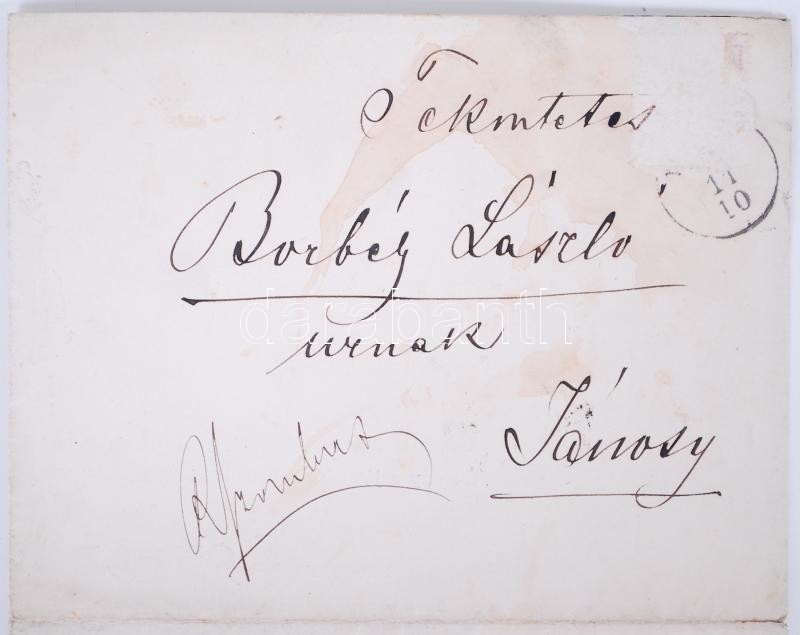 Tekintetes
Borbély László
11
10
darabanth
urnak
Jánosy
R Szombat